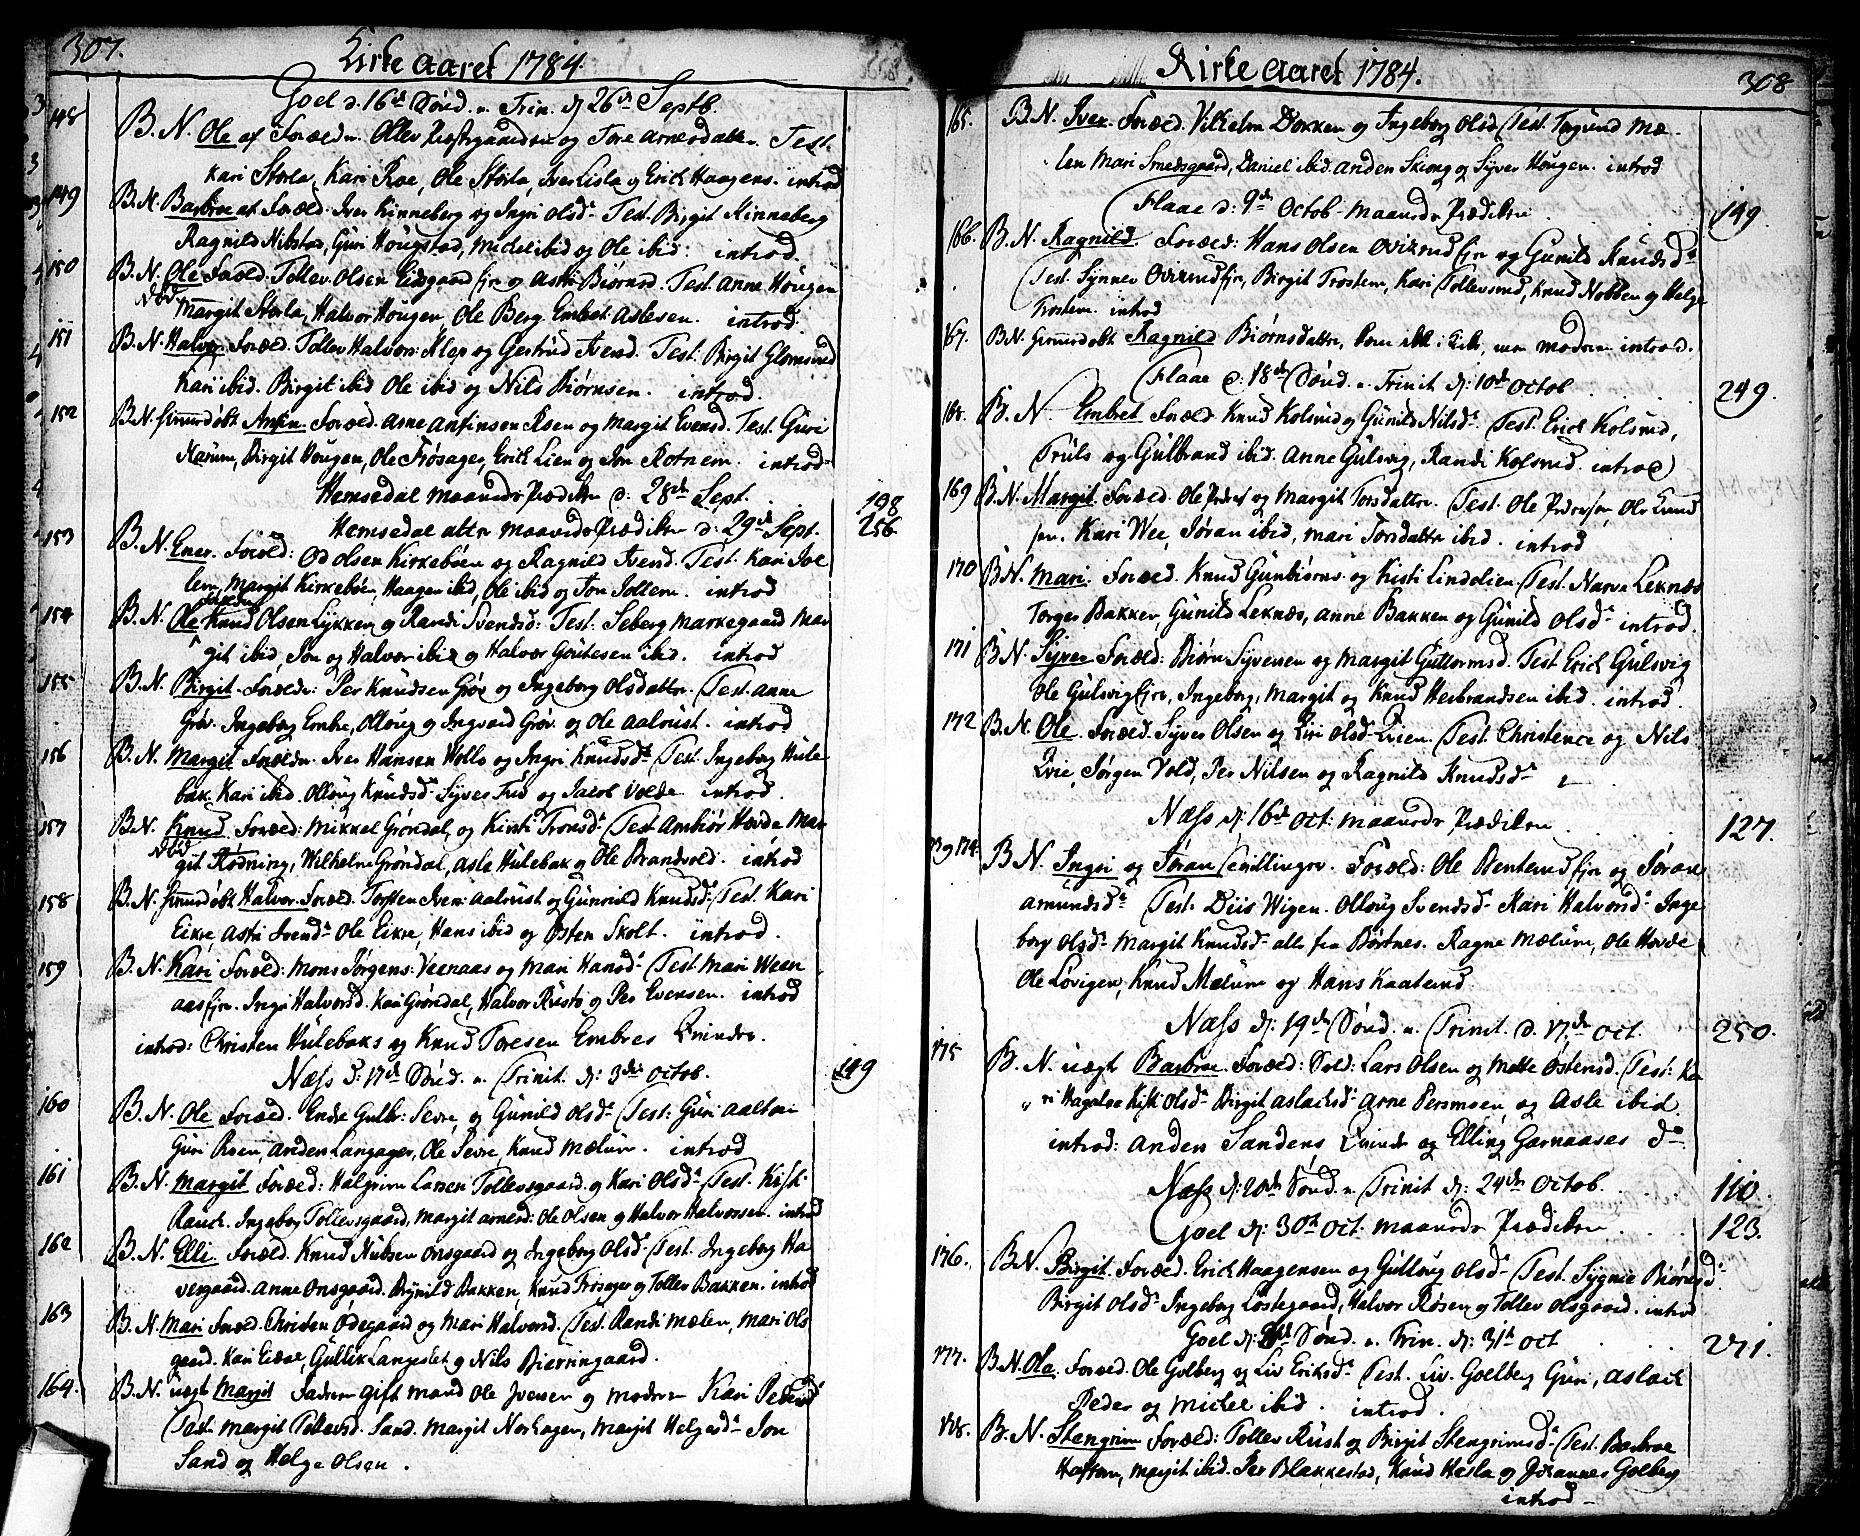 307. Kirke Aaret 1784.
Goel d. 16de Sönd. n. Trin. dj 26de Septb.
148 B.N. Ole af Foræld. Ollev og Tore Arnesdatter. Test.
Kari Storla, Kari Roe, Ole Storla, Iver Lisla og Erich Haagens. introd
149 B.N. Barbroe af Foræld. Iver Kinneberg og Ingri Olsdr. Test. Birgit Kinneberg
Ragnild Nibstad, Guri Hougstad, Michel ibid og Ole ibid: introd.
150 B.N. Ole Foræld. Tollev Olsen Eidsgaard og Astri Biörnsd. Test. Anne Hougen
Margit Storla, Halvor Hougen, Ole Berg. Embret Aslesen. introd.
151 B.N. Halvor Foræld. Tollev Halvors: Klep og Gertrud Iversd. Test. Birgit Glomsrud
Kari ibid. Birgit ibid Ole ibid og Nils Biörnsen. introd.
152 B.N. Ansin. Foræld. Arne Anfinsen Roen og Margit Evensd. Test. Guri
Karum, Birgit Hougen, Ole Frösager, Erich Lien og Jon Rotnem. introd
Hemsedal Maaneds Prædiken d: 28de Sept. 198
Hemsedal atter Maaneds Prædiken d. 29de Sept. 256
153 B.N. Ener. Foræld: Od Olsen Kirkeböen og Ragnild Iversd. Test. Kari
Margit Kirkeböen, Haagen ibid, Ole ibid og Jon Tollem. introd
154 B.N. Ole Knud Olsen Lykken og Randi Svendsd: Test. Seberg Markegaard Mar
git ibid, Jon og Halvor ibid og Halvor Goutesen ibid. introd
155 B.N. Birgit. Foræld: Per Knudsen Gröv og Ingeborg Olsdatter. Test. Anne
Gröv. Ingeborg Embre, Olloug og Ingvard Gröv. og Ole Aalrust. introd
156 B.N. Margit Foræld. Iver Hansen Holle og Ingri Knudsdr. Test. Ingeborg Hule
bak. Kari ibid. Olloug Knudsd. Syver Trö og Jacob Volde introd.
157 B.N. Knud. Foræld: Mikkel Gröndal, og Kirsti Tronsd. Test. Ambiör Hovde Mar
git Flödning, Wilhelm Gröndal, Asle Hulebak og Ole Brandvold. introd
158 B.N. Halvor. Foræld. Torsten Iver: Aalrust og Gunnild Knudsd. Test. Kari
Eikre, Astri Svend. Ole Eikre, Hans ibid og Östen Skolt. introd.
159 B.N. Kari Foræld: Mons Jörgens: Veenaas og Mari Hansd. Test. Mari Ween
aas. Ingri Halvorsd. Kari Gröndal, Halvor Rusto og Per Evensen. introd
introd: Christen Hulebaks og Knud Toresen Embres Qvinder.
Næss d: 17de Sönd. n. Trinit. dj: 3die Octob. 149
160 B.N. Ole Foræld. Endre Gulb: Sevre, og Gunild Olsd. Test: Guri Aaltoni
Guri Roen, Anders Langager, Ole Sevre, Knud Mælum. introd
161 B.N. Margit Foræld: Halgrim Larsen Tollevsgaard og Kari Olsd. Test. Kisti
Rauk. Ingeborg Tollevsgaard, Margit Arnesd: Ole Olsen og Halvor Halvorsen. introd
162 B.N. Elli Foræld. Knud Nubsen Onsgaard og Ingeborg Olsd. Test. Ingeborg Ha
versgaard. Anne Onsgaard. Rognild Bakken, Knud Frösager og Tollev Bakken. introd
163 B.N. Mari Foræld. Christen Ödegaard og Mari Halvorsd. Test. Randi Mælen, Mari Ols
gaard. Kari, Gullik Langeslet og Nils Bierringaard.
164. B.N. uægt Margit Faderen gift Mand Ole Iversen og Moderen Kari Pedersd
Test. Margit Tollevsd. Sand. Margit Norhagen, Margit Helgesd. Jon
Sand og Helge Olsen.
Kirke Aaret 1784. 308
165. B.N. Iver. Foræld. Vilhelm Dokken og Ingeborg Olsd. Test. Torgund Mæ
len Mari Smedsgaard, Daniel ibid. Anden Skiong og Syver Hougen. introd
Flaae d: 9de Octob. Maaneds Prædiken. 149
166. B.N. Ragnild. Foræld: Hans Olsen Ovizrud og Gunild Knudsd.
Test. Synnev Ovizrud, Birgit Trostem, Kari Tollevsrud, Knud Nobben og Helge
Trostem. introd
167. B.N. Ragnild Biörnsdatter, kom ikke i Kirke, men Moderen introd.
Flaae d: 18de Sönd. n. Trinit. dj: 10de Octob. 249.
168. B.N. Embret Foræld. Knud Kolsrud og Gunild Nilsd. Test. Erich Kolsrud,
Truls og Gulbrand ibid. Anne Gulsvig, Randi Kolsrud. introd
169 B.N. Margit. Foræld. Ole Peders og Margit Torsdatter. Test. Ole Pedersen, Ole Knud
sen. Kari Wee, Jöran ibid, Mari Torsdatter ibid. introd
170 B.N. Mari. Foræld. Knud Gunbiörns. og Kisti Lindelien Test. Narve Leknæs
Torger Bakken, Gunild Leknæs, Anne Bakken og Gunild Olsd. introd.
171 B.N. Syver Foræld: Biörn Syversen og Margit Guttormsd. Test. Erich Gulsvig
Ole Gulsvig, Ingeborg, Margit og Knud Herbrandsen ibid. introd.
172 B.N. Ole. Foræld. Syver Olsen og Liv Olsd. Qvien. Test. Christence og Nils
Qvie, Jörgen Vold, Per Nilsen og Ragnild Knudsd.
Næss dj: 16de Oct: Maaneds Prædiken 127.
173 og 174. B.N. Ingri og Jöran Tvillinger. Foræld: Ole Benterud og Jöran
Amundsd. Test. Deis Wigen. Olloug Svendsd. Kari Halvorsd. Inge
borg Olsd. Margit Knudsd. alle fra Börtnes. Ragne Mælum, Ole Hovde
Ole Lövigen, Knud Mælum og Hans Kaatesud
Næss dj: 19de Sönd. n. Trinit. d. 17de Oct. 250.
175 B.N. uægt Barbroe. Foræld: Sold: Lars Olsen og Mette Östensd. Test: Ka
ri Hagaloe Kisti Olsd. Birgit Aslachsd. Arne Persmoen og Asle ibid.
introd: Anden Sandens, Qvinde og Elling Garnaases do
Næss dj: 20de Sönd. n. Trinit dj: 24de Octob. 110.
Goel dj: 30te Oct. Maaneds Prædiken 123.
176. B.N. Birgit. Foræld. Erich Haagensen og Gulloug Olsd. Test. Sygnie Biörnsd.
Birgit Olsd. Ingeborg Löstegaard, Halvor Rösen og Tollev Olsgaard. introd
Goel dj: Sönd. n. Trin. dj: 31te Oct 271.
177. B.N. Ole. Foræld. Ole Golberg og Liv Eriksd. Test. Liv. Goelberg Guri, Aslack
Peder og Michel ibid. introd.
178. B.N. Stengrim Foræld: Tollev Rust og Birgit Stengrimsd. Test. Barbroe
Haftun, Margit ibid. Per Blakkestad, Knud Hesla og Johannes Golberg
introd